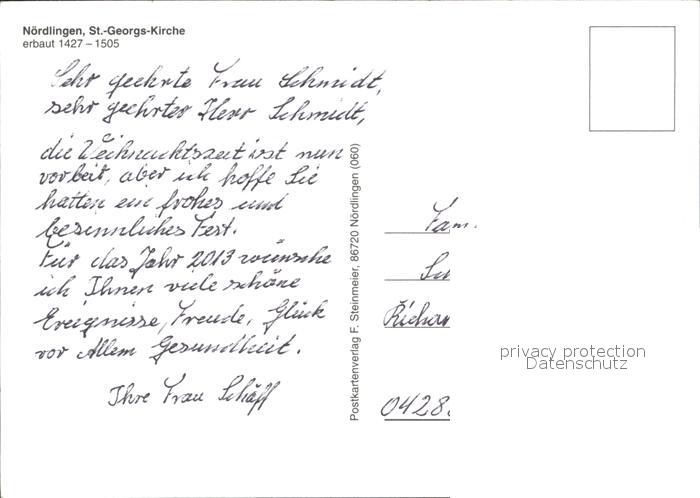 Nördlingen, St.-Georgs-Kirche
erbaut 1427 – 1505
Sehr geehrte Frau Schmidt,
sehr geehrter Herr Schmidt,
die Weihnachtszeit ist nun
vorbei, aber ich hoffe Sie
hatten ein frohes und
besinnliches Fest.
Für das Jahr 2013 wünsche
ich Ihnen viele schöne
Ereignisse, Freude, Glück
vor Allem Gesundheit.
Ihre Frau Schäff
Postkartenverlag F. Steinmeier, 86720 Nördlingen (060)
Fam.
0428
privacy protection
Datenschutz